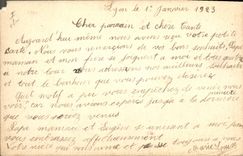 Lyon le 1er janvier 1923
Cher parrain et chère tante
Aujourd'hui même nous avons reçu votre jolie
carte. Nous vous remercions de vos bons souhaits. Papa
maman et mon frère se joignent à moi et tous
à notre tour vous adressons nos meilleurs souhaits
et tout le bonheur que vous pouvez désirer.
Quel motif a pu vous empêcher de venir nous
voir, car nous avions espéré jusqu'à la dernière
que vous seriez venus
Papa maman et se unissent à moi pour
vous embrasser affectueusement
Votre nièce qui vous aime et pense toujours à vous